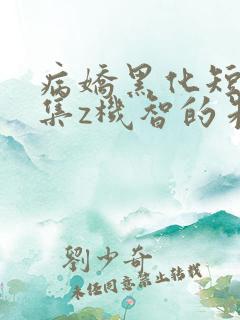 病嬌黑化短
集z機智的
劉少奇
未任同意禁止转载